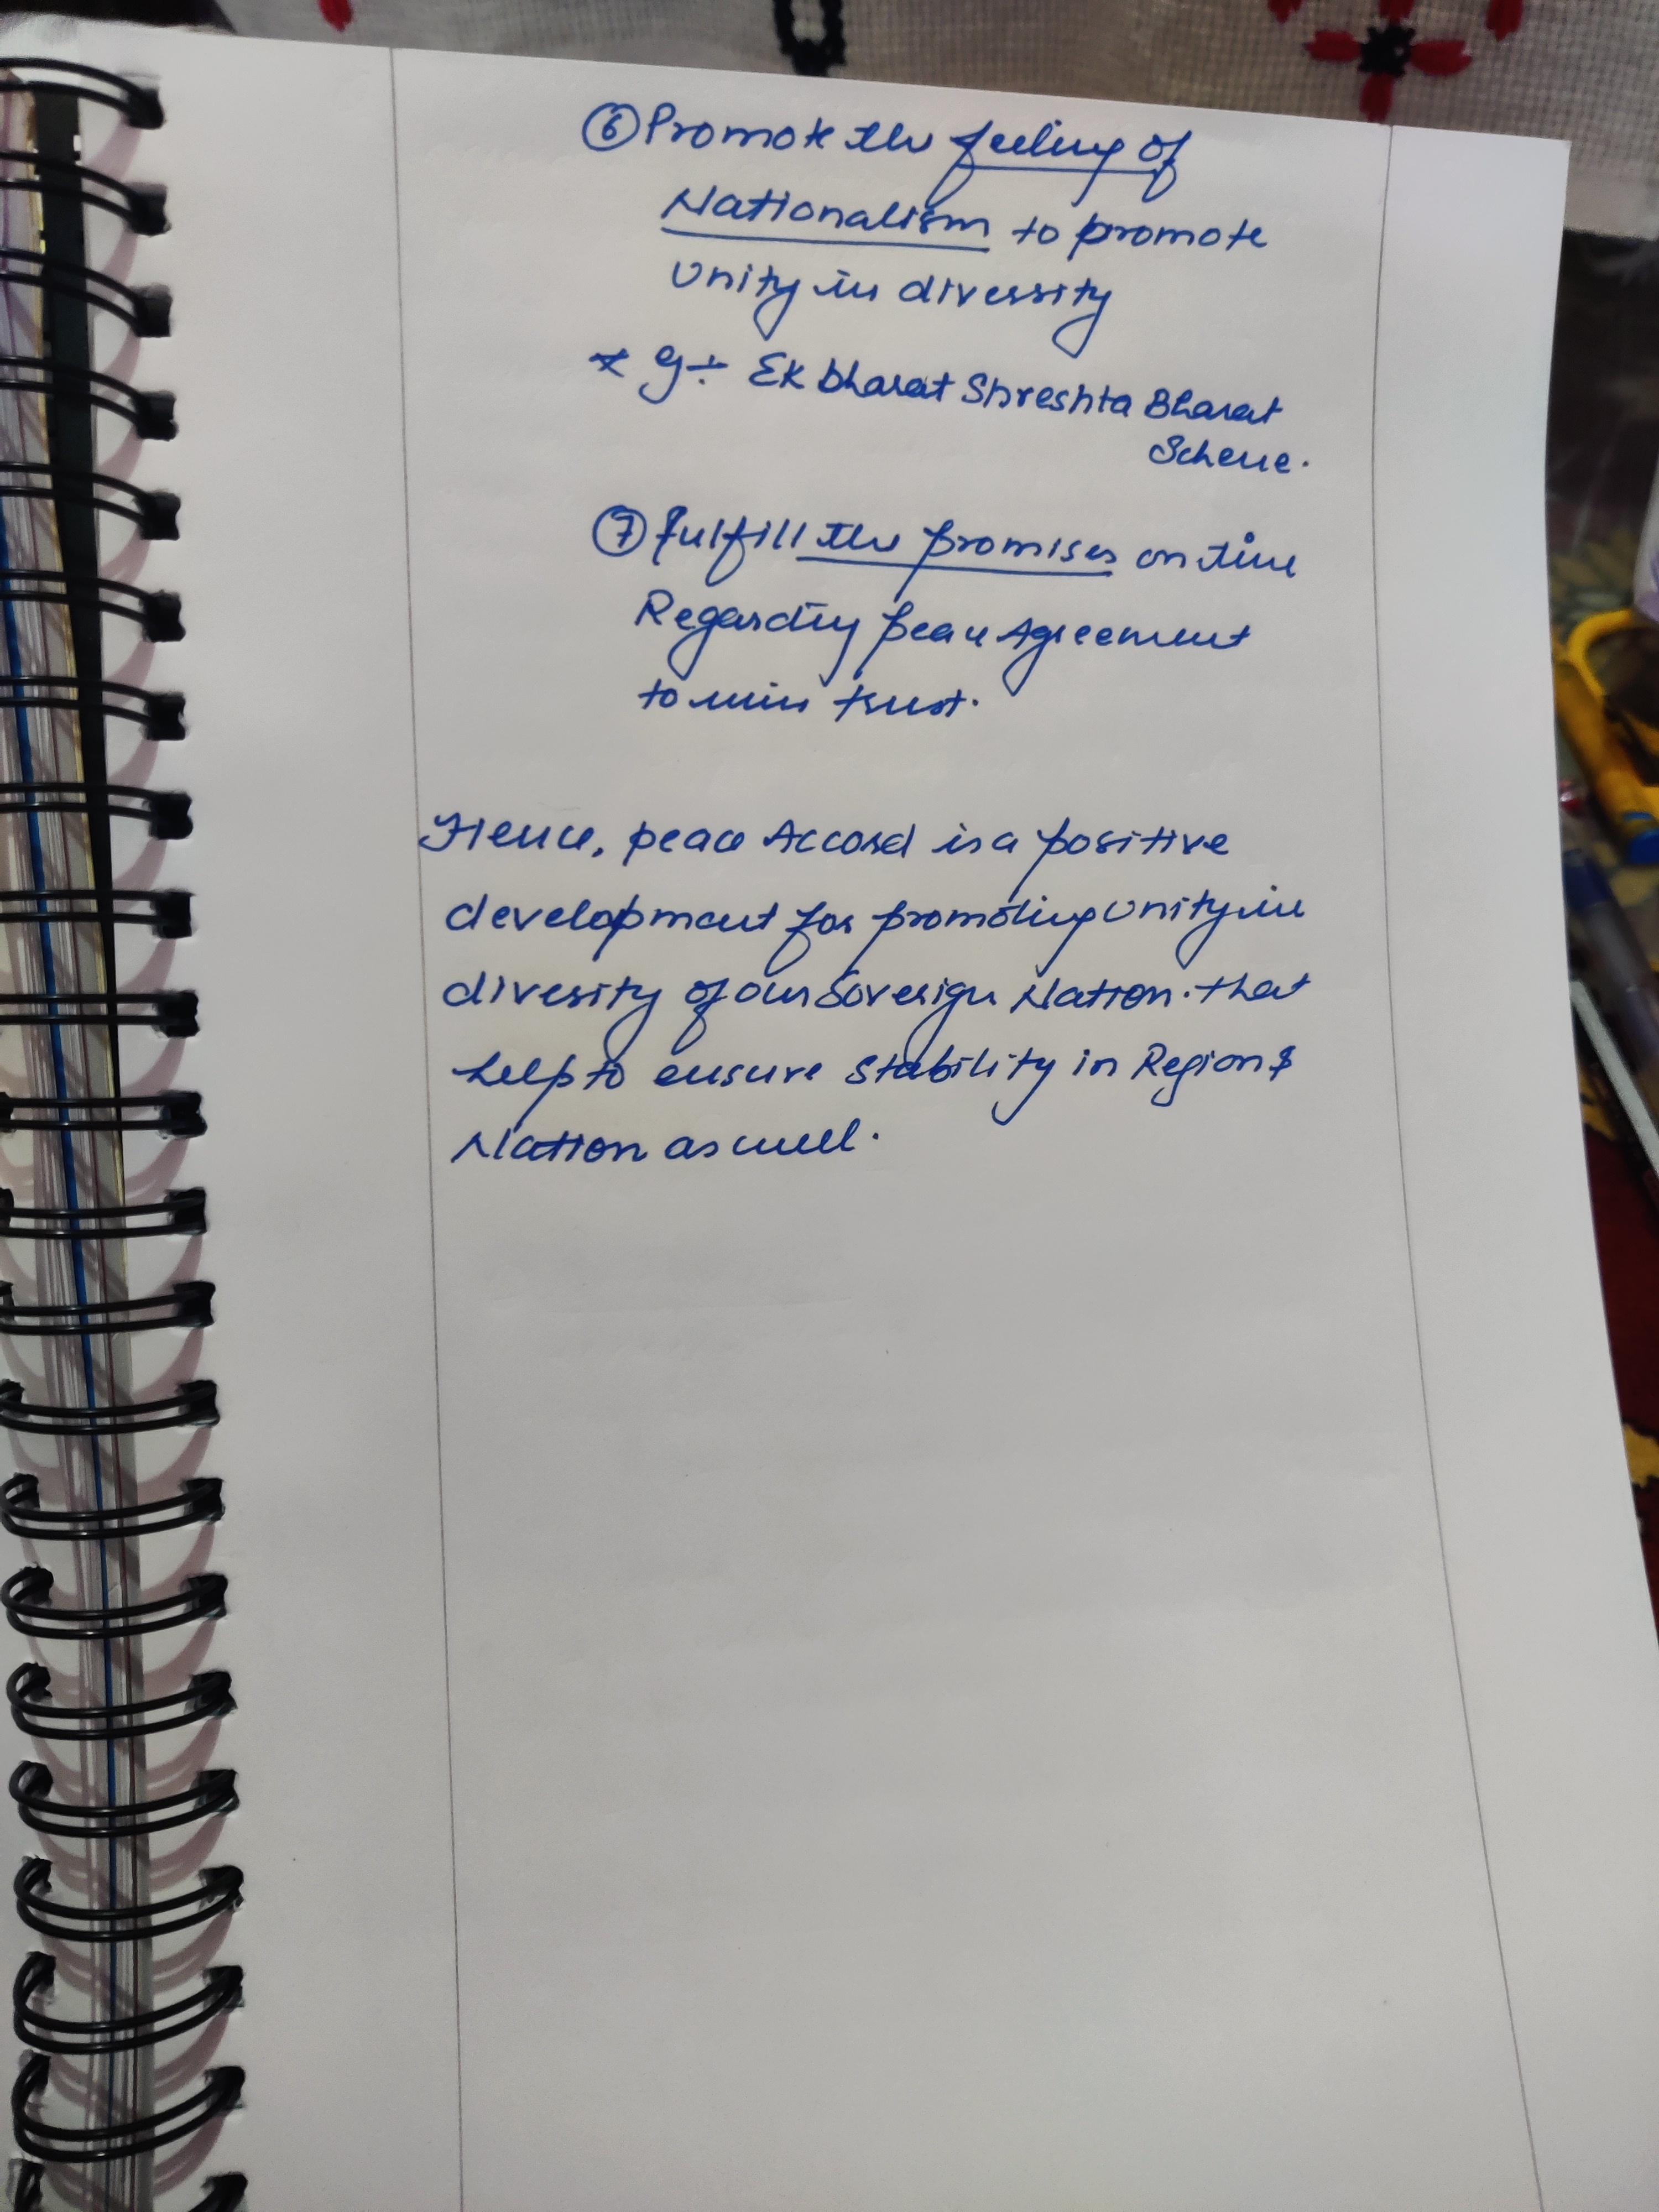 ⑥ Promote the feeling of
Nationalism to promote
Unity in diversity
* eg:- Ek bharat Shreshta Bharat
Scheme.
⑦ fulfill the promises on time
Regarding peace Agreement
to win trust.
Hence, peace Accord is a positive
development for promoting Unity in
divesity of our Soverign Nation. that
help to ensure stability in Region &
Nation as well.